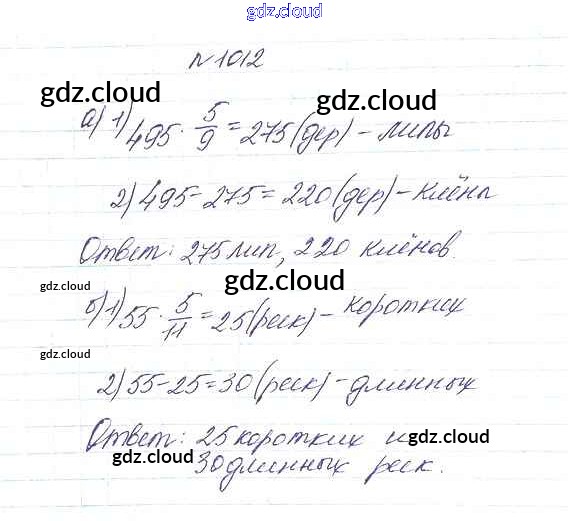 gdz.cloud
N 1012
gdz.cloud gdz.cloud
а) 1) 495 · 5/9 = 275 (дер) - липы
2) 495 - 275 = 220 (дер) - клёны
Ответ: 275 лип, 220 клёнов.
gdz.cloud gdz.cloud
б) 1) 55 · 5/11 = 25 (реек) - коротких
gdz.cloud
2) 55 - 25 = 30 (реек) - длинных
Ответ: 25 коротких и
gdz.cloud gdz.cloud
30 длинных реек.